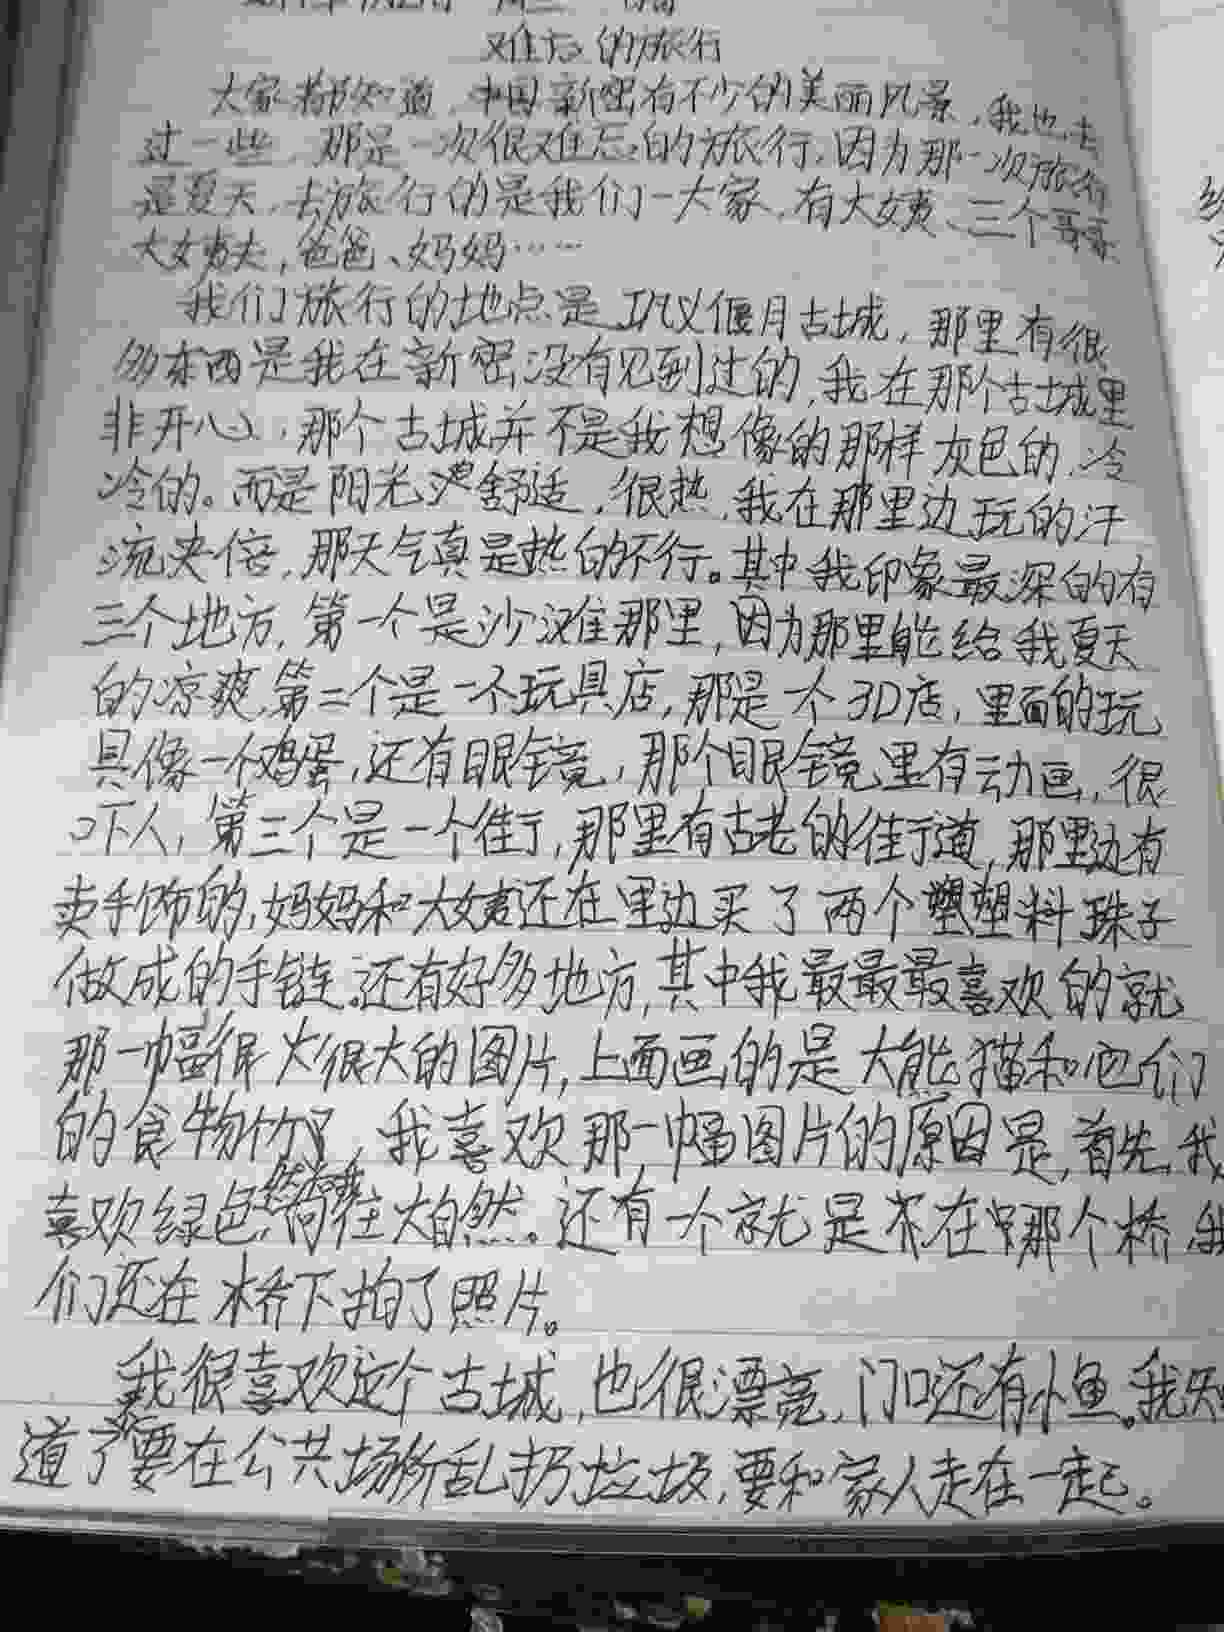 难忘的旅行
大家都知道,中国新密有不少的美丽风景,我也去
过一些,那是一次很难忘的旅行,因为那一次旅行
是夏天,去旅行的是我们一大家,有大姨、三个哥哥、
大姨夫,爸爸、妈妈……
我们旅行的地点是巩义偃月古城,那里有很
多东西是我在新密没有见到过的,我在那个古城里
非开心,那个古城并不是我想像的那样灰色的,冷
冷的。而是阳光舒适,很热,我在那里边玩的汗
流夹倍,那天气真是热的不行。其中我印象最深的有
三个地方,第一个是沙滩那里,因为那里能给我夏天
的凉爽,第二个是一个玩具店,那是一个3D店,里面的玩
具像一个鸡蛋,还有眼镜,那个眼镜里有动画,很
吓人,第三个是一个街,那里有古老的街道,那里边有
卖手饰的,妈妈和大姨还在里边买了两个塑料珠子
做成的手链。还有好多地方,其中我最最最喜欢的就
那一幅很大的图片,上面画的是大熊猫和它们
的食物竹子,我喜欢那一幅图片的原因是,首先,我
喜欢绿色,向往大自然。还有一个就是在那个桥,我
们还在桥下拍了照片。
我很喜欢这个古城,也很漂亮,门口还有小鱼。我知
道了不要在公共场所乱扔垃圾,要和家人走在一起。